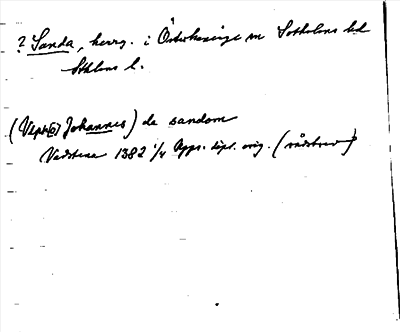 ? Sanda, herrg. i Österhaninge sn Sotholms hd
Sthlms l.
(Vlph[o] Johannes) de sandom
Vadstena 1382 1/4 Apps. dipl. orig. (rådsbrev)